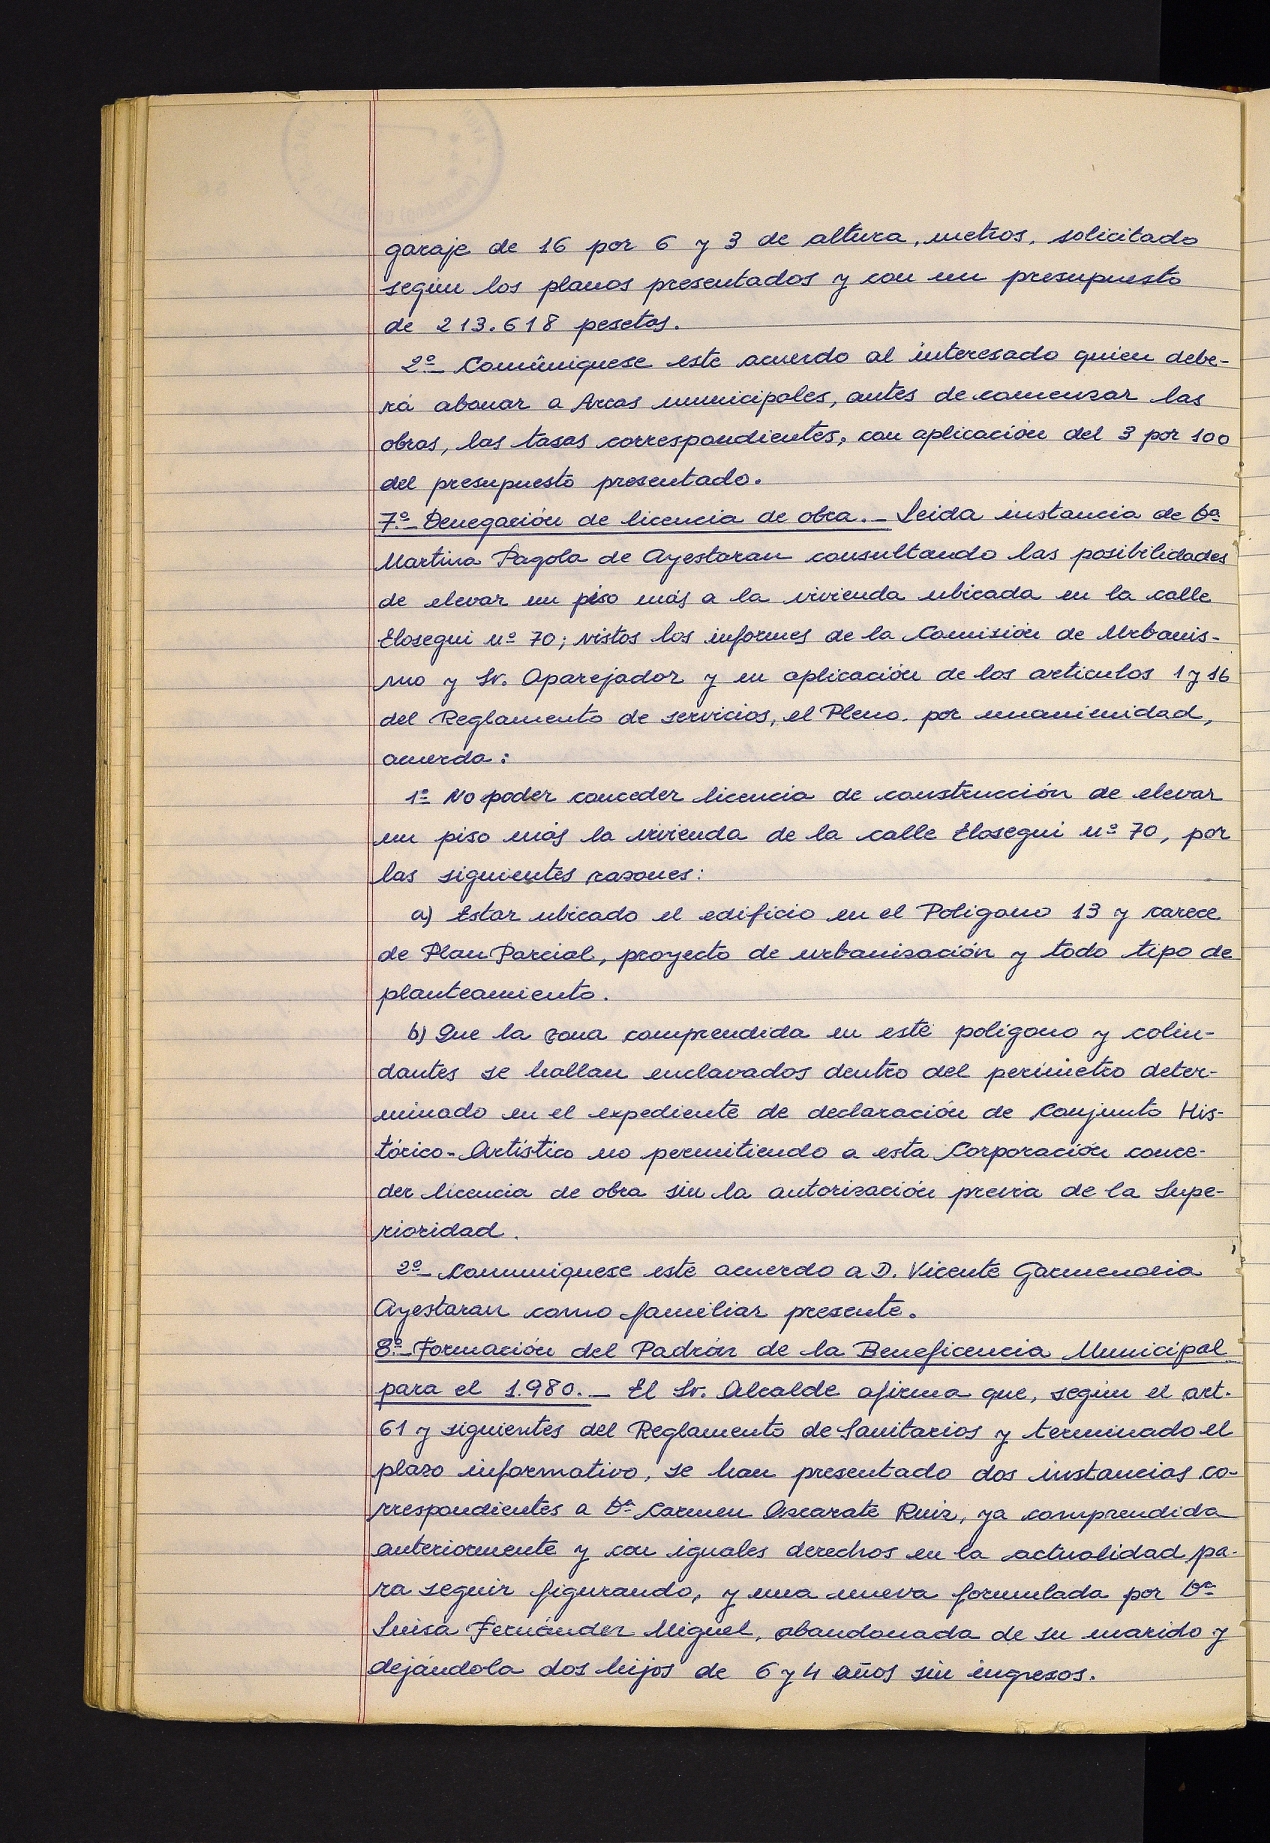 garaje de 16 por 6 y 3 de altura, metros, solicitado
según los planos presentados y con un presupuesto
de 213.618 pesetas.
2º Comuníquese este acuerdo al interesado quien debe-
rá abonar a Arcas municipales, antes de comenzar las
obras, las tasas correspondientes, con aplicación del 3 por 100
del presupuesto presentado.
7º.- Denegación de licencia de obra.- Leida instancia de Dª
Martina Pagola de Ayestaran consultando las posibilidades
de elevar un piso más a la vivienda ubicada en la calle
Elosegui nº 70; vistos los informes de la Comisión de Urbanis-
mo y Sr. Aparejador y en aplicación de los articulos 1 y 16
del Reglamento de servicios, el Pleno. por unanimidad,
acuerda:
1º No poder conceder licencia de construcción de elevar
un piso más la vivienda de la calle Elosegui nº 70, por
las siguientes razones:
a) Estar ubicado el edificio en el Poligono 13 y carece
de Plan Parcial, proyecto de urbanización y todo tipo de
planteamiento.
b) Que la zona comprendida en este poligono y colin-
dantes se hallan enclavados dentro del perímetro deter-
minado en el expediente de declaración de Conjunto His-
tórico-Artístico no permitiendo a esta Corporación conce-
der licencia de obra sin la autorización previa de la Supe-
rioridad.
2º Comuniquese este acuerdo a D. Vicente Garmendia
Ayestaran como familiar presente.
8º.- Formación del Padrón de la Beneficencia Municipal
para el 1.980.- El Sr. Alcalde afirma que, según el art.
61 y siguientes del Reglamento de Sanitarios y terminado el
plazo informativo, se han presentado dos instancias co-
rrespondientes a Dª Carmen Azcarate Ruiz, ya comprendida
anteriormente y con iguales derechos en la actualidad pa-
ra seguir figurando, y una nueva formulada por Dª
Luisa Fernández Miguel, abandonada de su marido y
dejándola dos hijos de 6 y 4 años sin ingresos.